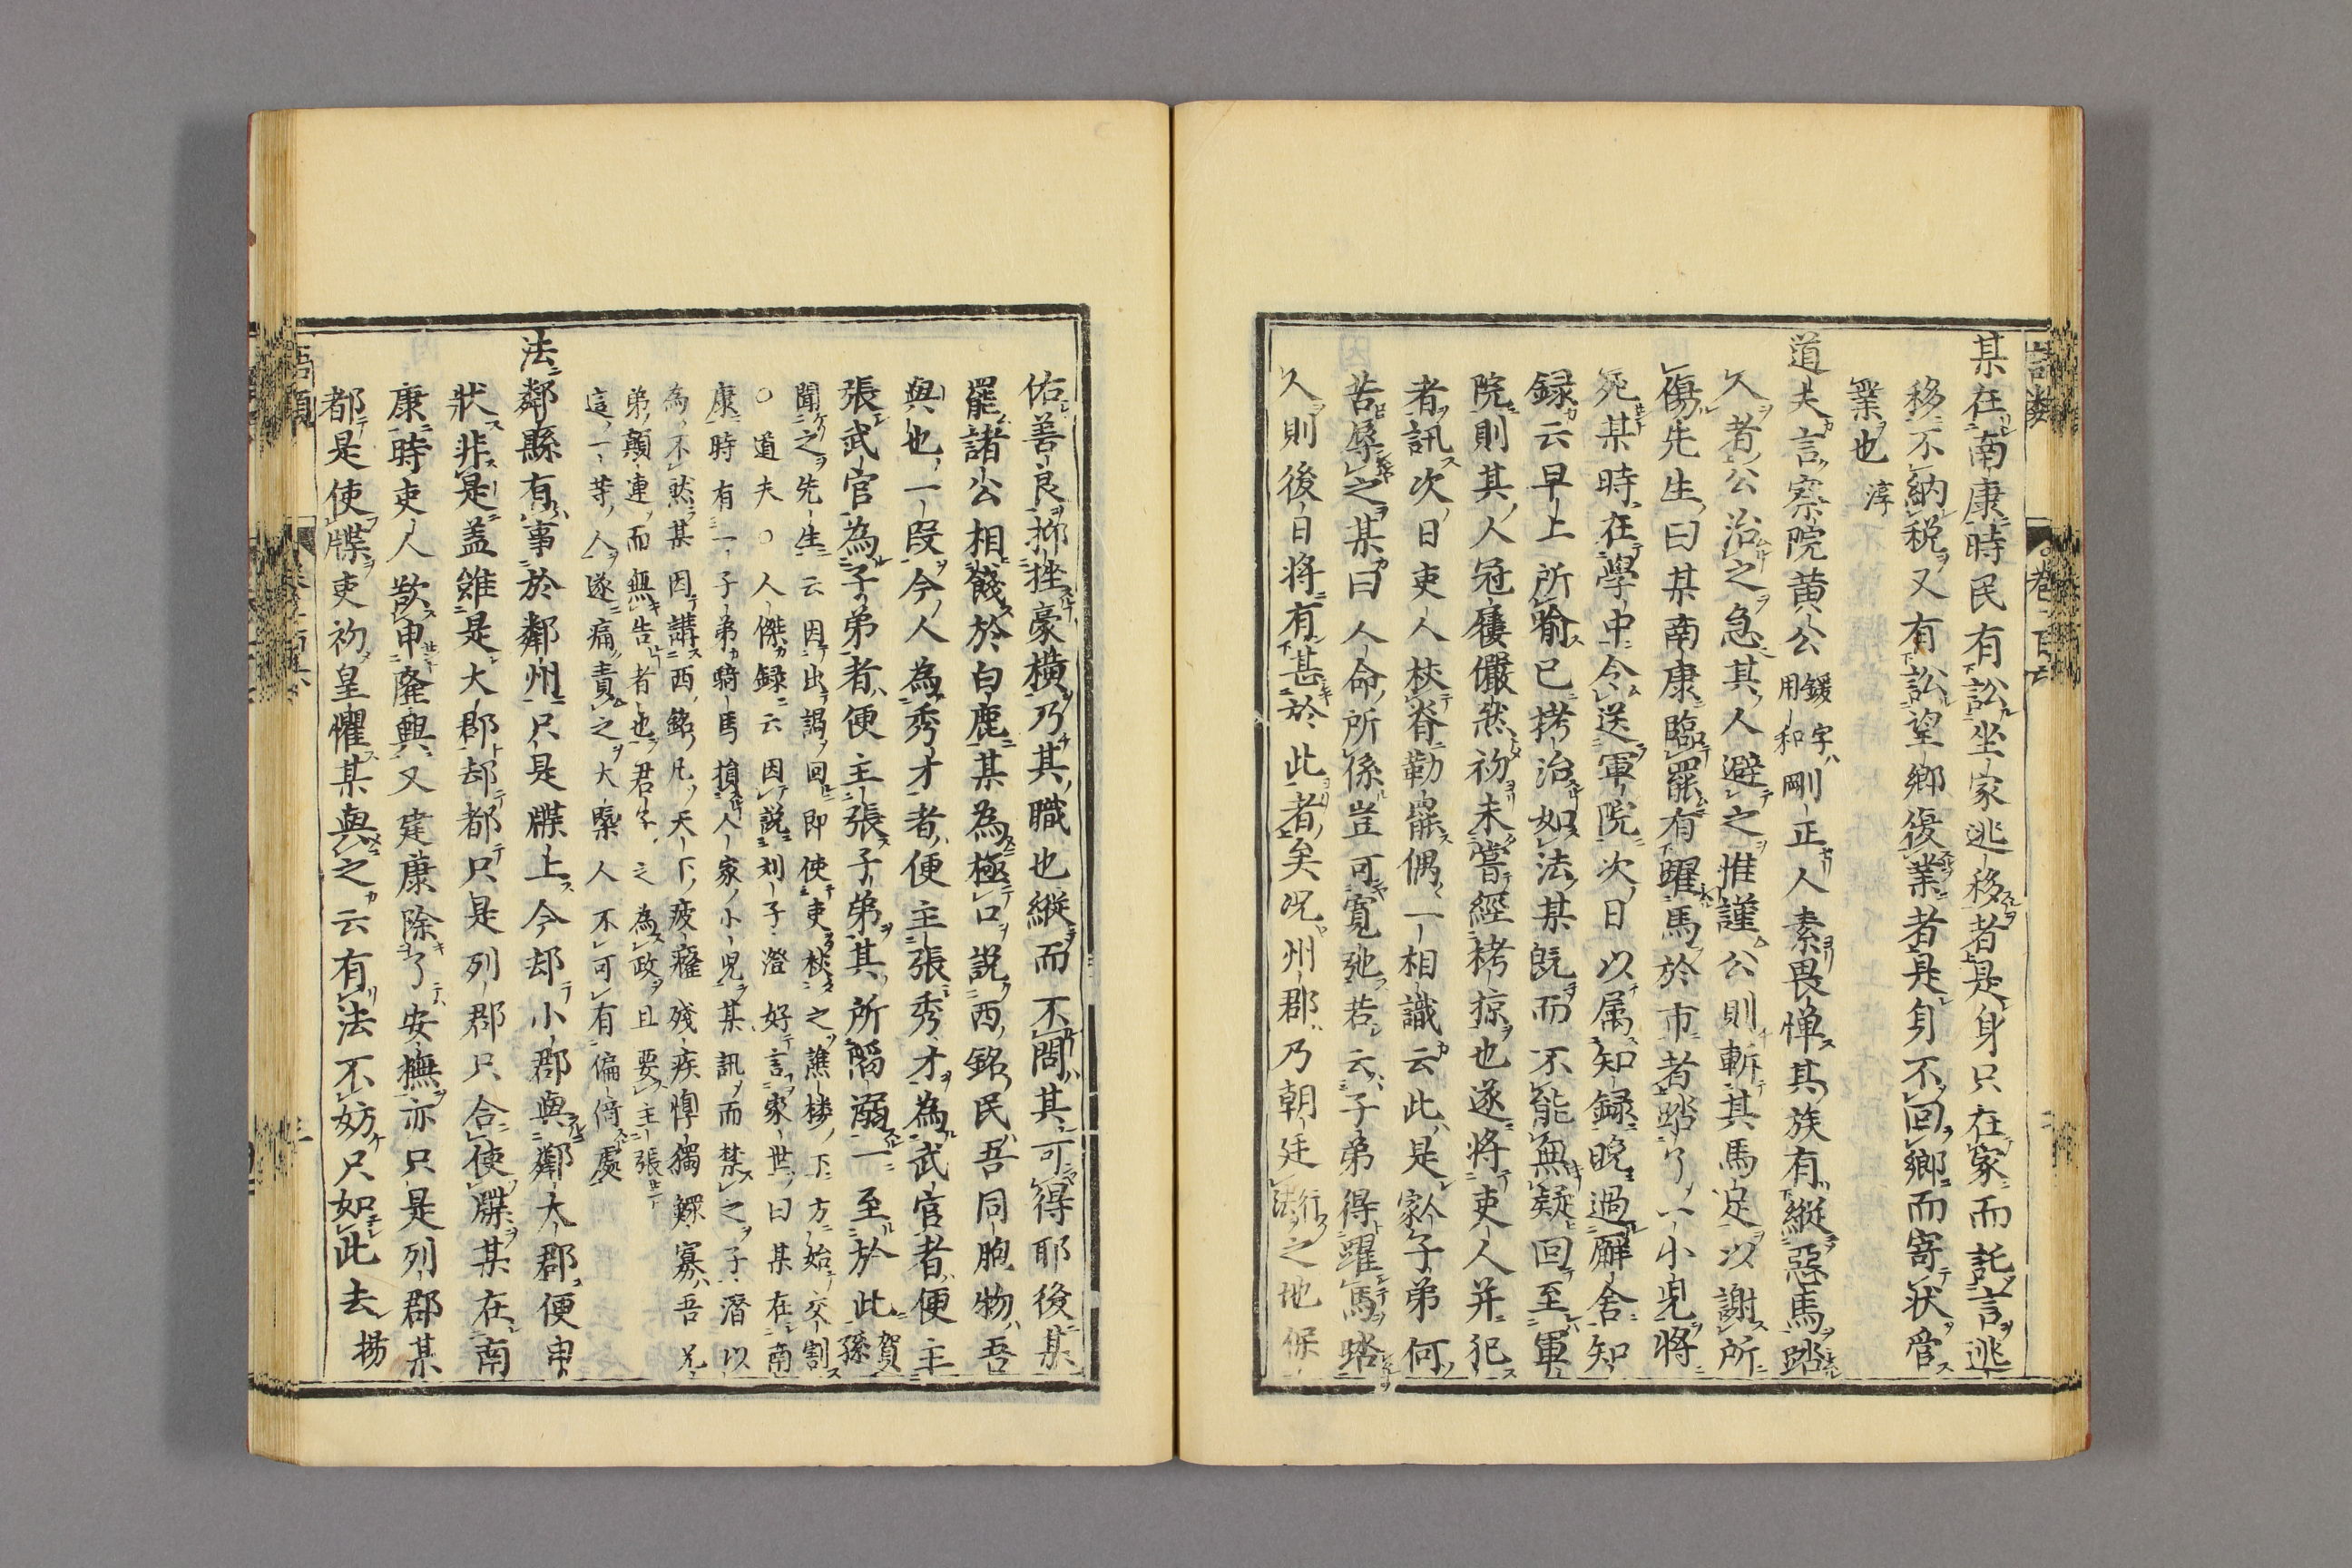 某在南康時民有訟坐家逃移者是身只在家而託言逃
移不納税又有訟望鄉復業者是身不回鄉而寄狀管
業也淳
道夫言察院黄公鍰字用和剛正人素畏憚其族有縱惡馬踏
人者公治之急其人避之惟謹公則斬其馬足以謝所
傷先生曰某南康臨罷有躍馬於市者踏了一小兒將
死某時在學中令送軍院次日以属知録晚過廨舍知
録云早上所喻已栲治如法某既而不能無疑回至軍
院則其人冠屨儼然初未嘗經栲掠也遂將吏人并犯
者訊次日吏人杖脊勒罷偶一相識云此是人家子弟何
苦辱之某曰人命所係豈可寬弛若云子弟得躍馬踏
人則後日將有甚於此者矣况州郡乃朝廷行法之地保
佑善良抑挫豪横乃其職也縱而不問其可得耶後某
罷諸公相餞於白鹿某為極口說西銘民吾同胞物吾
與也一段今人為秀才者便主張秀才為武官者便主
張武官為子弟者便主張子弟其所䧟溺一至於此賀孫
聞之先生云因出謁回即使吏杖之譙樓下方始交割
○道夫○人傑録云因說刘子澄好言家世曰某在南
康時有一子弟騎馬損人家小兒某訊而禁之子澄以
為不然某因講西銘凡天下疲癃殘疾惸獨鰥寡吾兄
弟顛連而無告者也君子之為政且要主張
這一等人遂痛責之大槩人不可有偏倚處
法鄰縣有事於鄰州只是牒上今却小郡與鄰大郡便申
狀非是盖雖是大郡却都只是列郡只合使牒某在南
康時吏人欲申隆興又建康除了安撫亦只是列郡某
都是使牒吏初皇懼某與之云有法不妨只如此去揚